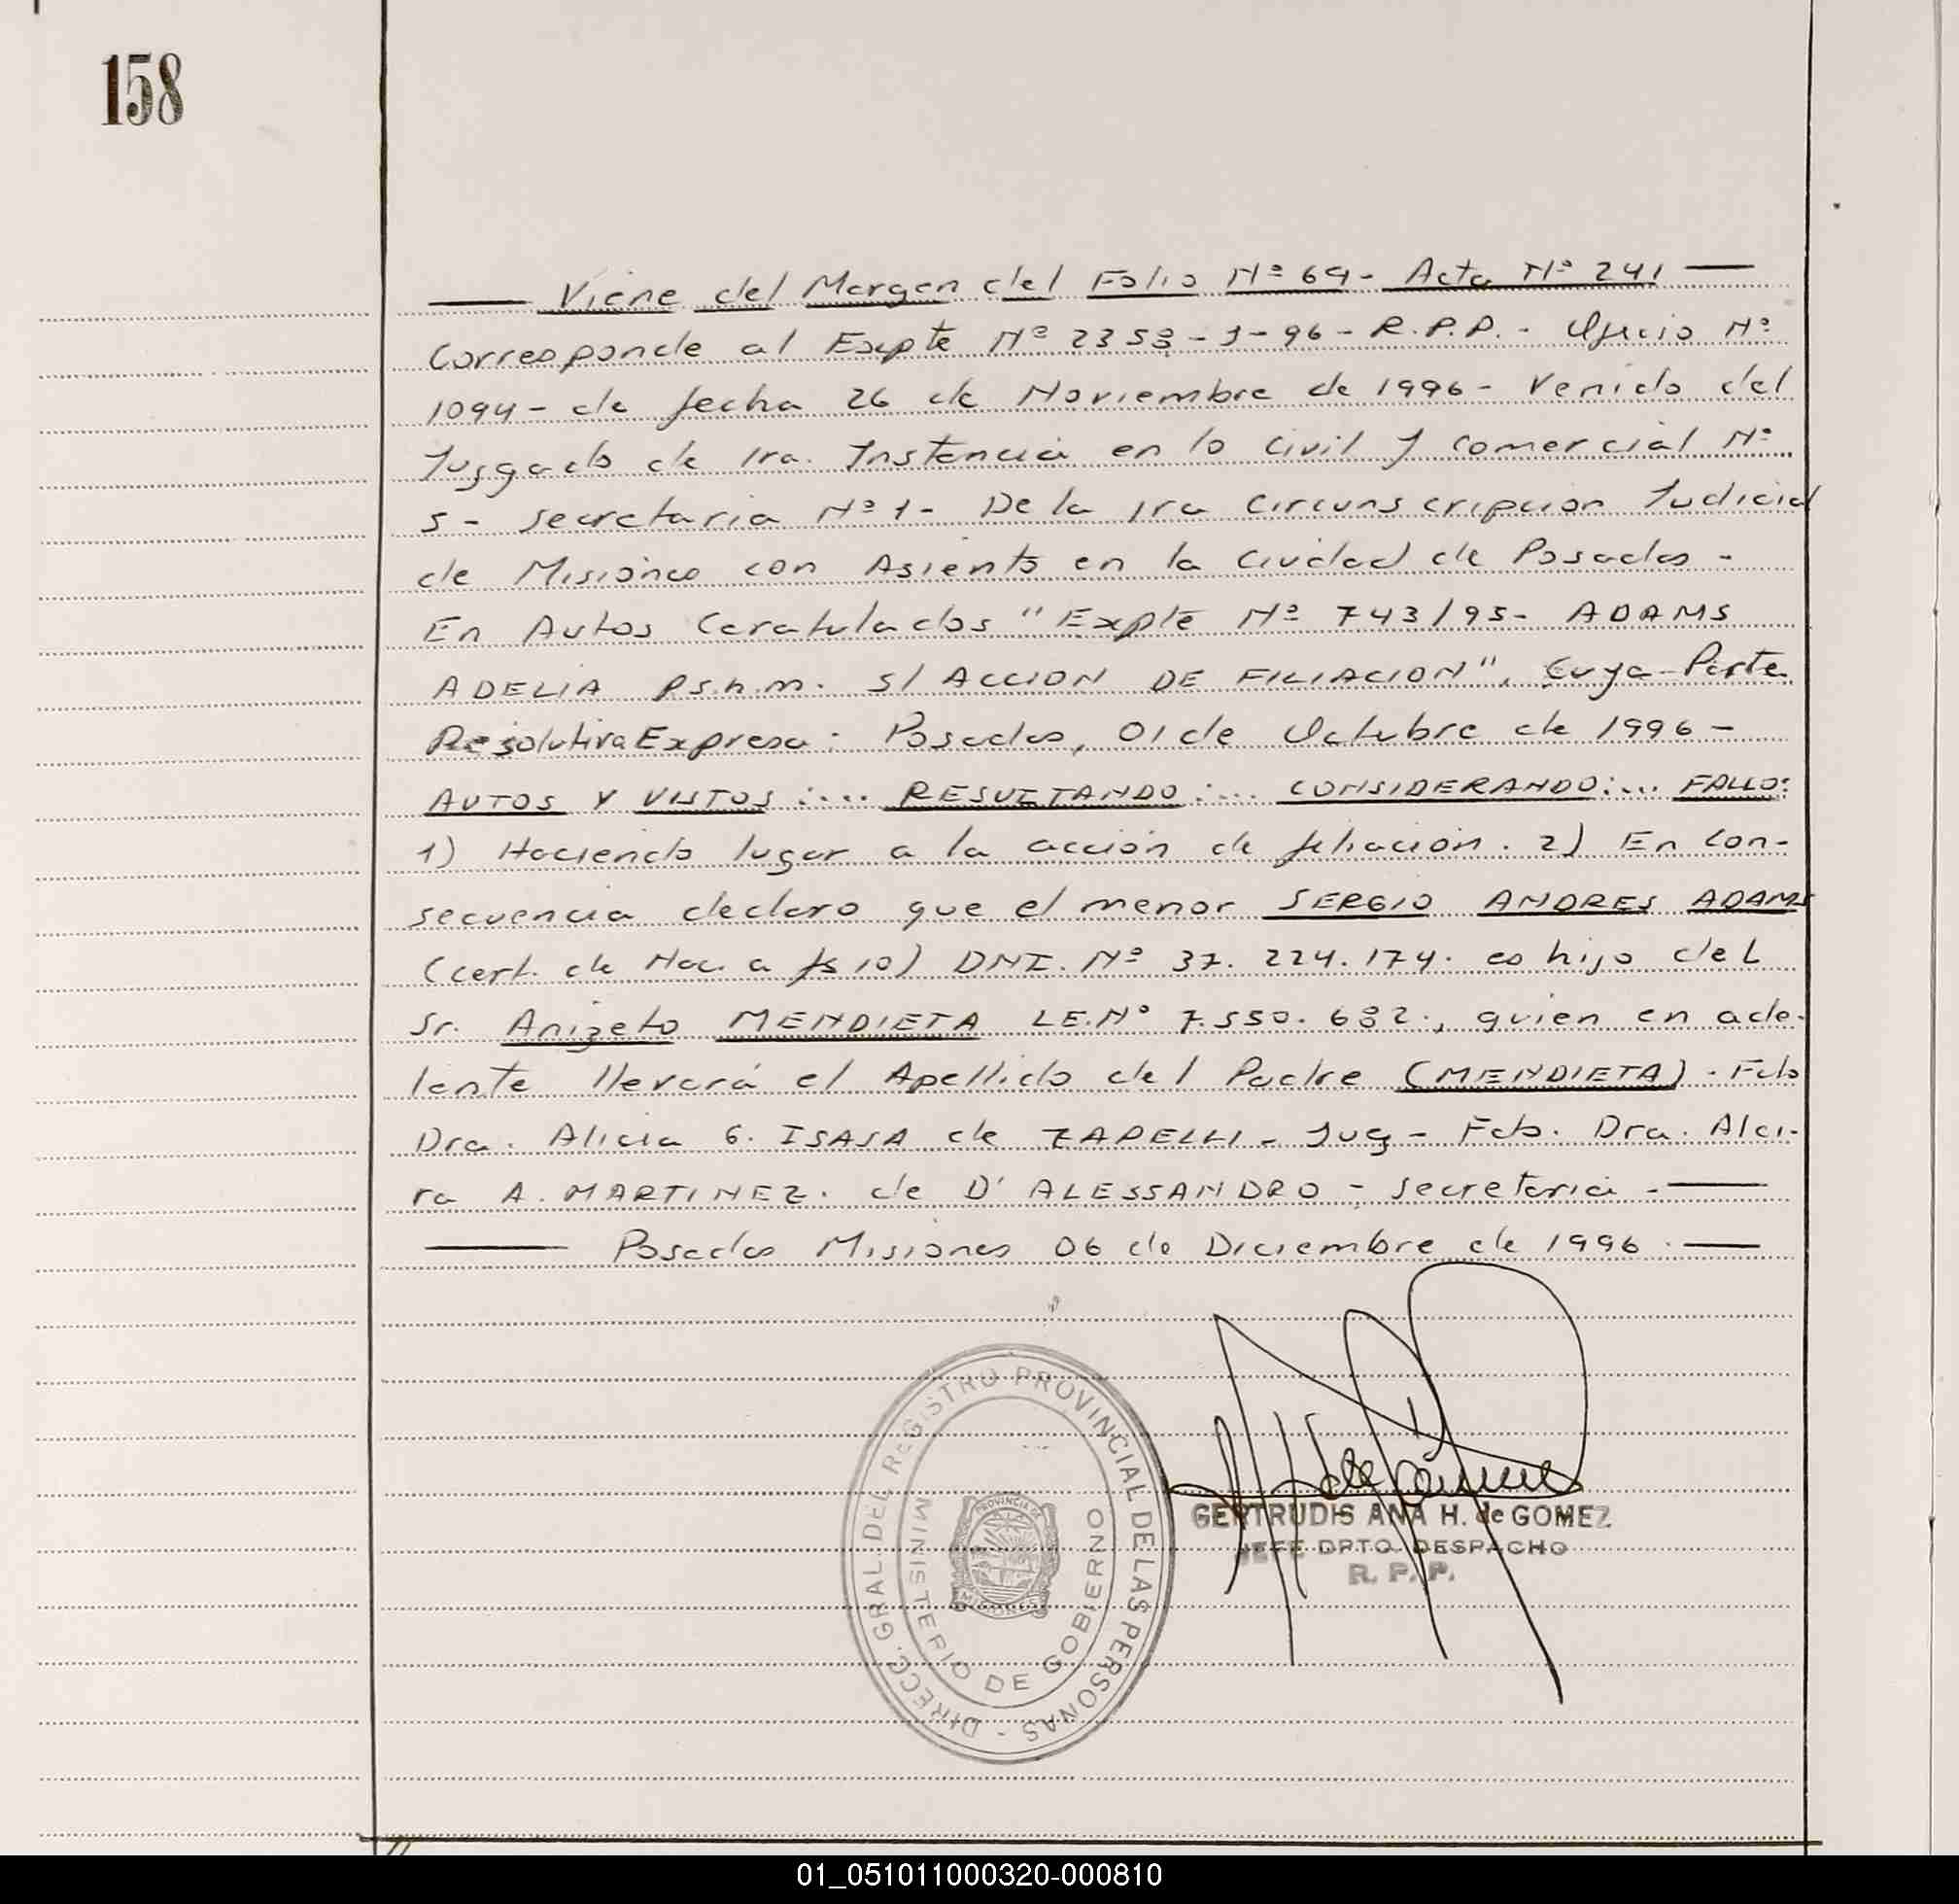 158
Viene del Margen del Folio Nº 69- Acta Nº 241
Corresponde al Expte Nº 2353-J-96- R.P.P.- Oficio Nº
1094- de fecha 26 de Noviembre de 1996- Venido del
Juzgado de 1ra. Instancia en lo Civil y Comercial Nº
5- Secretaria Nº 1- De la 1ra Circunscripción Judicial
de Misiones con Asiento en la Ciudad de Posadas-
En Autos Caratulados "Expte Nº 743/95- ADAMS
ADELIA P.S.h.m. S/ ACCION DE FILIACION", Cuya-Parte
Resolutiva Expresa: Posadas, 01 de Octubre de 1996-
AUTOS Y VISTOS:... RESULTANDO:... CONSIDERANDO:... FALLO:
1) Haciendo lugar a la acción de filiación. 2) En Con-
secuencia declaro que el menor SERGIO ANDRES ADAMS
(cert. de Nac. a fs 10) DNI. Nº 37.224.174. es hijo del
Sr. Anizeto MENDIETA LE.Nº 7.550.632., quien en ade-
lante llevará el Apellido del Padre (MENDIETA)- Fdo
Dra. Alicia G. ISASA de ZAPELLI- Juez- Fdo. Dra. Alci-
ra A. MARTINEZ. de D'ALESSANDRO- Secretaria-
Posadas Misiones 06 de Diciembre de 1996.
DIRECC. GRAL. DEL REGISTRO PROVINCIAL DE LAS PERSONAS -
MINISTERIO DE GOBIERNO
PROVINCIA DE
MISIONES
GERTRUDIS ANA H. de GOMEZ
JEFE DPTO. DESPACHO
R. P. P.
01_051011000320-000810